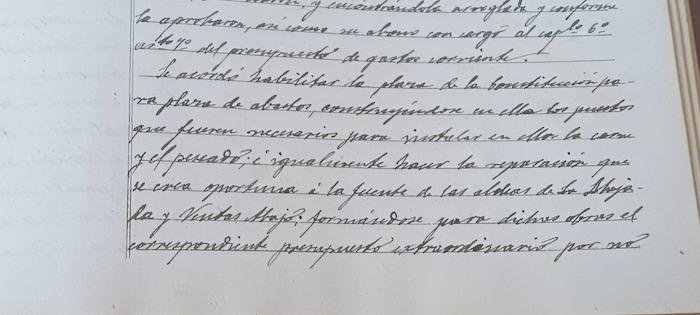 y encontrándola arreglada y conforme
la aprobaron, así como su abono con cargo al cap.tlo 6º
art.º 7º del presupuesto de gastos corriente.
Se acordó habilitar la plaza de la Constitución pa-
ra plaza de abastos, construyéndose en ella los puestos
que fueren necesarios para instalar en ellos la carne
y el pescado; é igualmente hacer la reparación que
se crea oportuna á la fuente de las aldeas de la
da y Ventas Abajo; formándose para dichas obras el
correspondiente presupuesto extraordinario por no